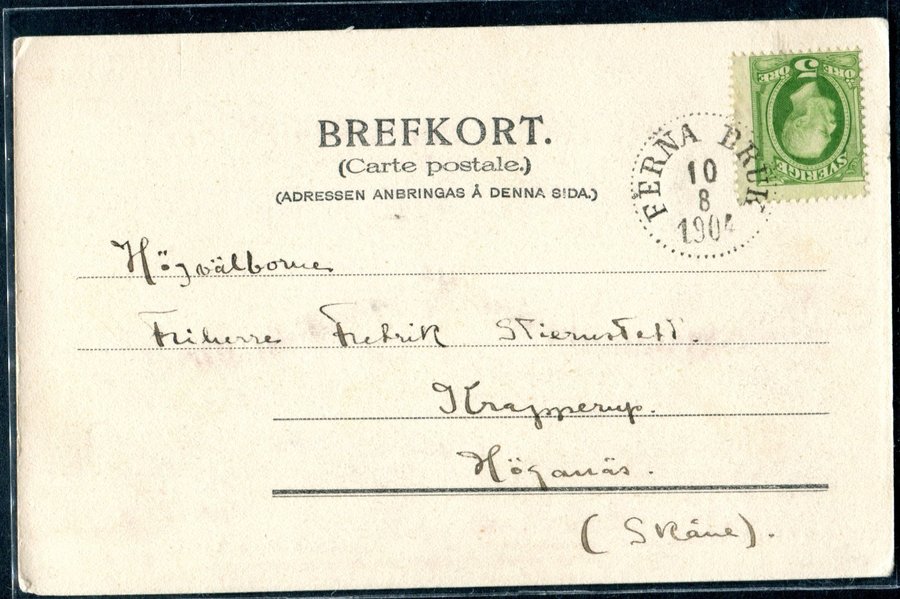 BREFKORT.
(Carte postale.)
(ADRESSEN ANBRINGAS Å DENNA SIDA.)
5
ÖRE ÖRE
SVERIGE
FERNA BRUK
10
8
1904
Högvälborne
Friherre Fredrik Stiernstedt.
Krapperup.
Höganäs.
(Skåne).